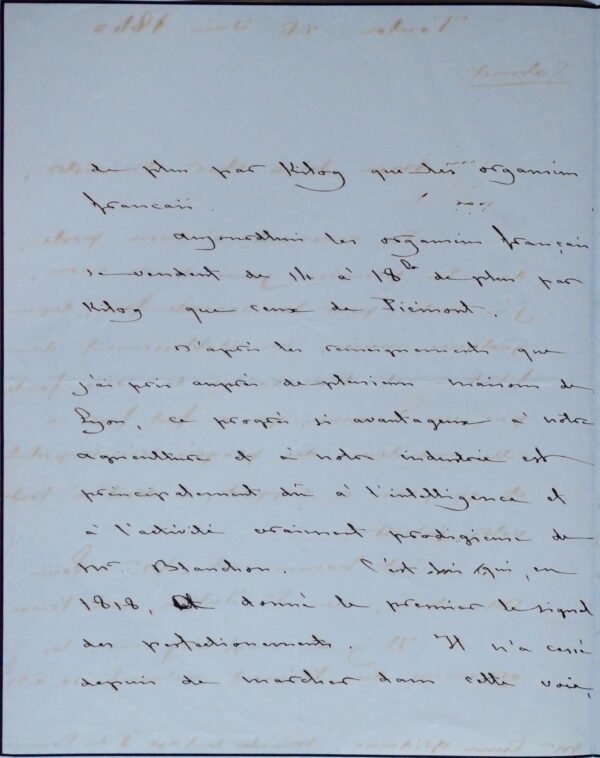 de plus par Kilog que les organsins
français.
Aujourdhui les organsins français
se vendent de 14 à 18 fr de plus par
Kilog que ceux de Piémont.
D'après les renseignements que
j'ai pris auprès de plusieurs maisons de
Lyon, ce progrès si avantageux à notre
agriculture et à notre industrie est
principalement dû à l'intelligence et
à l'activité vraiment prodigieuse de
Mr. Blanchon. C'est lui qui, en
1818, a donné le premier le signal
des perfectionements. Il n'a cessé
depuis de marcher dans cette voie,